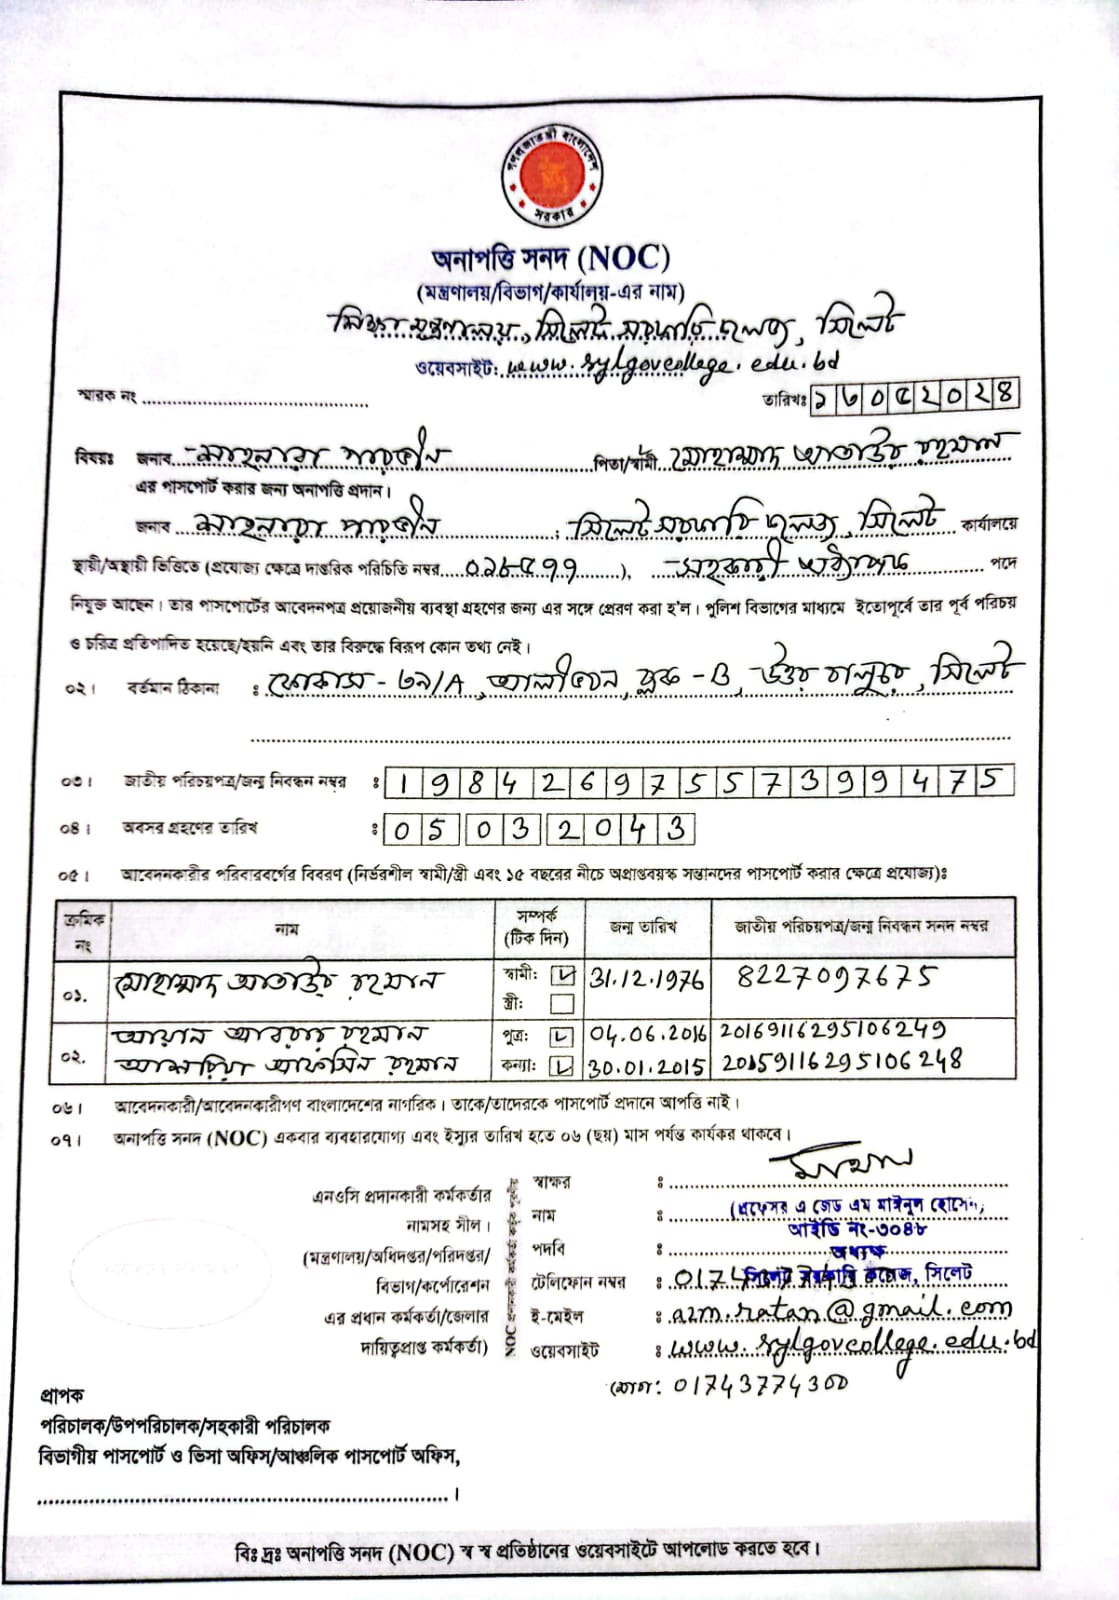 গণপ্রজাতন্ত্রী বাংলাদেশ
সরকার
অনাপত্তি সনদ (NOC)
(মন্ত্রণালয়/বিভাগ/কার্যালয়-এর নাম)
শিক্ষা মন্ত্রণালয়, সিলেট সরকারি কলেজ, সিলেট
ওয়েবসাইট: www.sylgovcollege.edu.bd
স্মারক নং তারিখঃ ১৬০৫২০২৪
বিষয়ঃ জনাব শাহনারা পারভীন পিতা/স্বামী মোহাম্মদ আতাউর রহমান
এর পাসপোর্ট করার জন্য অনাপত্তি প্রদান।
জনাব শাহনারা পারভীন ; সিলেট সরকারি কলেজ, সিলেট কার্যালয়ে
স্থায়ী/অস্থায়ী ভিত্তিতে (প্রযোজ্য ক্ষেত্রে দাপ্তরিক পরিচিতি নম্বর ০১৮৫৭৭), সহকারী অধ্যাপক পদে
নিযুক্ত আছেন। তার পাসপোর্টের আবেদনপত্র প্রয়োজনীয় ব্যবস্থা গ্রহণের জন্য এর সঙ্গে প্রেরণ করা হ'ল। পুলিশ বিভাগের মাধ্যমে ইতোপূর্বে তার পূর্ব পরিচয়
ও চরিত্র প্রতিপাদিত হয়েছে/হয়নি এবং তার বিরুদ্ধে বিরূপ কোন তথ্য নেই।
০২। বর্তমান ঠিকানা : ফোকাস - ৬৯/A, ব্লক - B, উত্তর বালুচর, সিলেট
০৩। জাতীয় পরিচয়পত্র/জন্ম নিবন্ধন নম্বর : 19842697557399475
০৪। অবসর গ্রহণের তারিখ : 05 03 2043
০৫। আবেদনকারীর পরিবারবর্গের বিবরণ (নির্ভরশীল স্বামী/স্ত্রী এবং ১৫ বছরের নীচে অপ্রাপ্তবয়স্ক সন্তানদের পাসপোর্ট করার ক্ষেত্রে প্রযোজ্য)ঃ
ক্রমিক নং নাম সম্পর্ক (টিক দিন) জন্ম তারিখ জাতীয় পরিচয়পত্র/জন্ম নিবন্ধন সনদ নম্বর
০১. মোহাম্মদ আতাউর রহমান স্বামী: 31.12.1976 8227097675
স্ত্রী:
আয়ান আবরার রহমান পুত্র: 04.06.2016 20169116295106249
০২. আফসিন রহমান কন্যা: 30.01.2015 20159116295106248
০৬। আবেদনকারী/আবেদনকারীগণ বাংলাদেশের নাগরিক। তাকে/তাদেরকে পাসপোর্ট প্রদানে আপত্তি নাই।
০৭। অনাপত্তি সনদ (NOC) একবার ব্যবহারযোগ্য এবং ইস্যুর তারিখ হতে ০৬ (ছয়) মাস পর্যন্ত কার্যকর থাকবে।
এনওসি প্রদানকারী কর্মকর্তার
নামসহ সীল।
(মন্ত্রণালয়/অধিদপ্তর/পরিদপ্তর/
বিভাগ/কর্পোরেশন
এর প্রধান কর্মকর্তা/জেলার
দায়িত্বপ্রাপ্ত কর্মকর্তা)
NOC
স্বাক্ষর :
নাম : (প্রফেসর এ জেড এম মাইনুল হোসেন)
আইডি নং-৩০৪৮
পদবি : অধ্যক্ষ
টেলিফোন নম্বর : সিলেট সরকারি কলেজ, সিলেট
ই-মেইল : azm.ratan@gmail.com
ওয়েবসাইট : www.sylgovcollege.edu.bd
ফোন: 01743774300
প্রাপক
পরিচালক/উপপরিচালক/সহকারী পরিচালক
বিভাগীয় পাসপোর্ট ও ভিসা অফিস/আঞ্চলিক পাসপোর্ট অফিস,
।
বিঃ দ্রঃ অনাপত্তি সনদ (NOC) স্ব স্ব প্রতিষ্ঠানের ওয়েবসাইটে আপলোড করতে হবে।